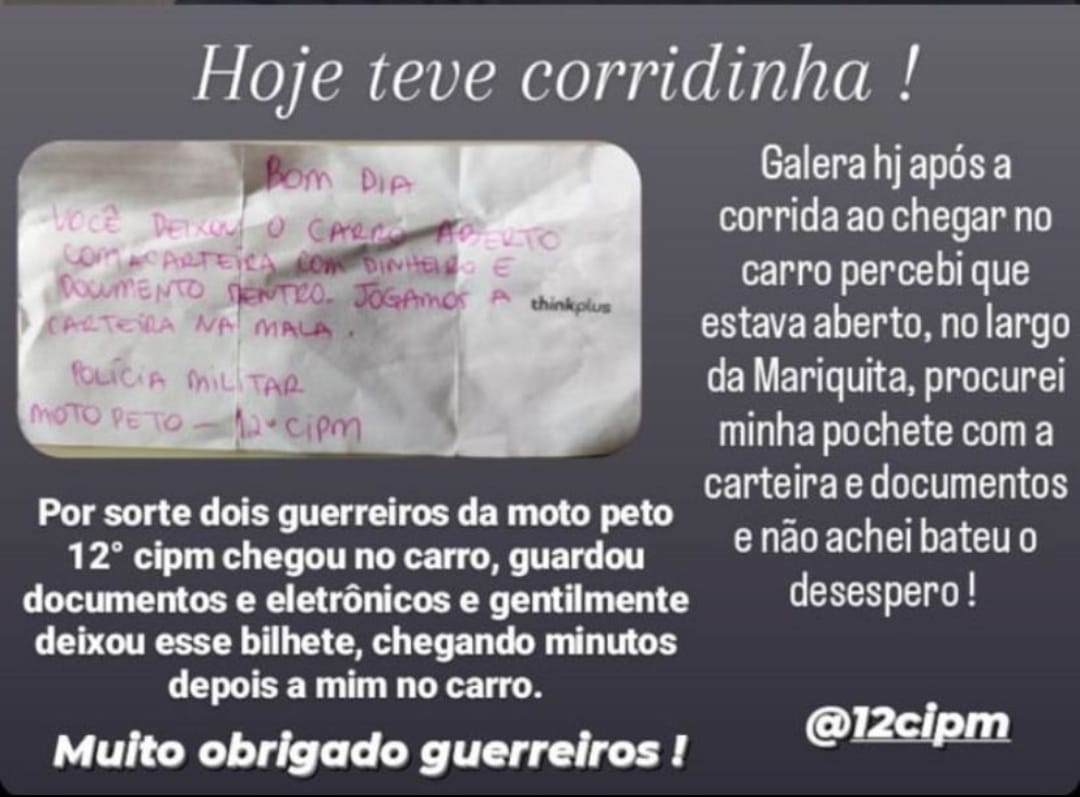 Hoje teve corridinha !
BOM DIA
VOCÊ DEIXOU O CARRO ABERTO
COM A CARTEIRA COM DINHEIRO E
DOCUMENTO DENTRO. JOGAMOS A
CARTEIRA NA MALA.
POLÍCIA MILITAR
MOTO PETO - 12ª CIPM
thinkplus
Galera hj após a
corrida ao chegar no
carro percebi que
estava aberto, no largo
da Mariquita, procurei
minha pochete com a
carteira e documentos
e não achei bateu o
desespero !
Por sorte dois guerreiros da moto peto
12° cipm chegou no carro, guardou
documentos e eletrônicos e gentilmente
deixou esse bilhete, chegando minutos
depois a mim no carro.
Muito obrigado guerreiros !
@12cipm